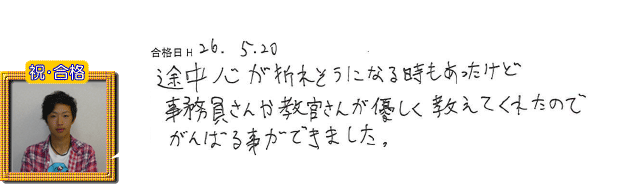 合格日 H 26. 5.20
祝・合格
途中心が折れそうになる時もあったけど
事務員さんや教官さんが優しく教えてくれたので
がんばる事ができました。